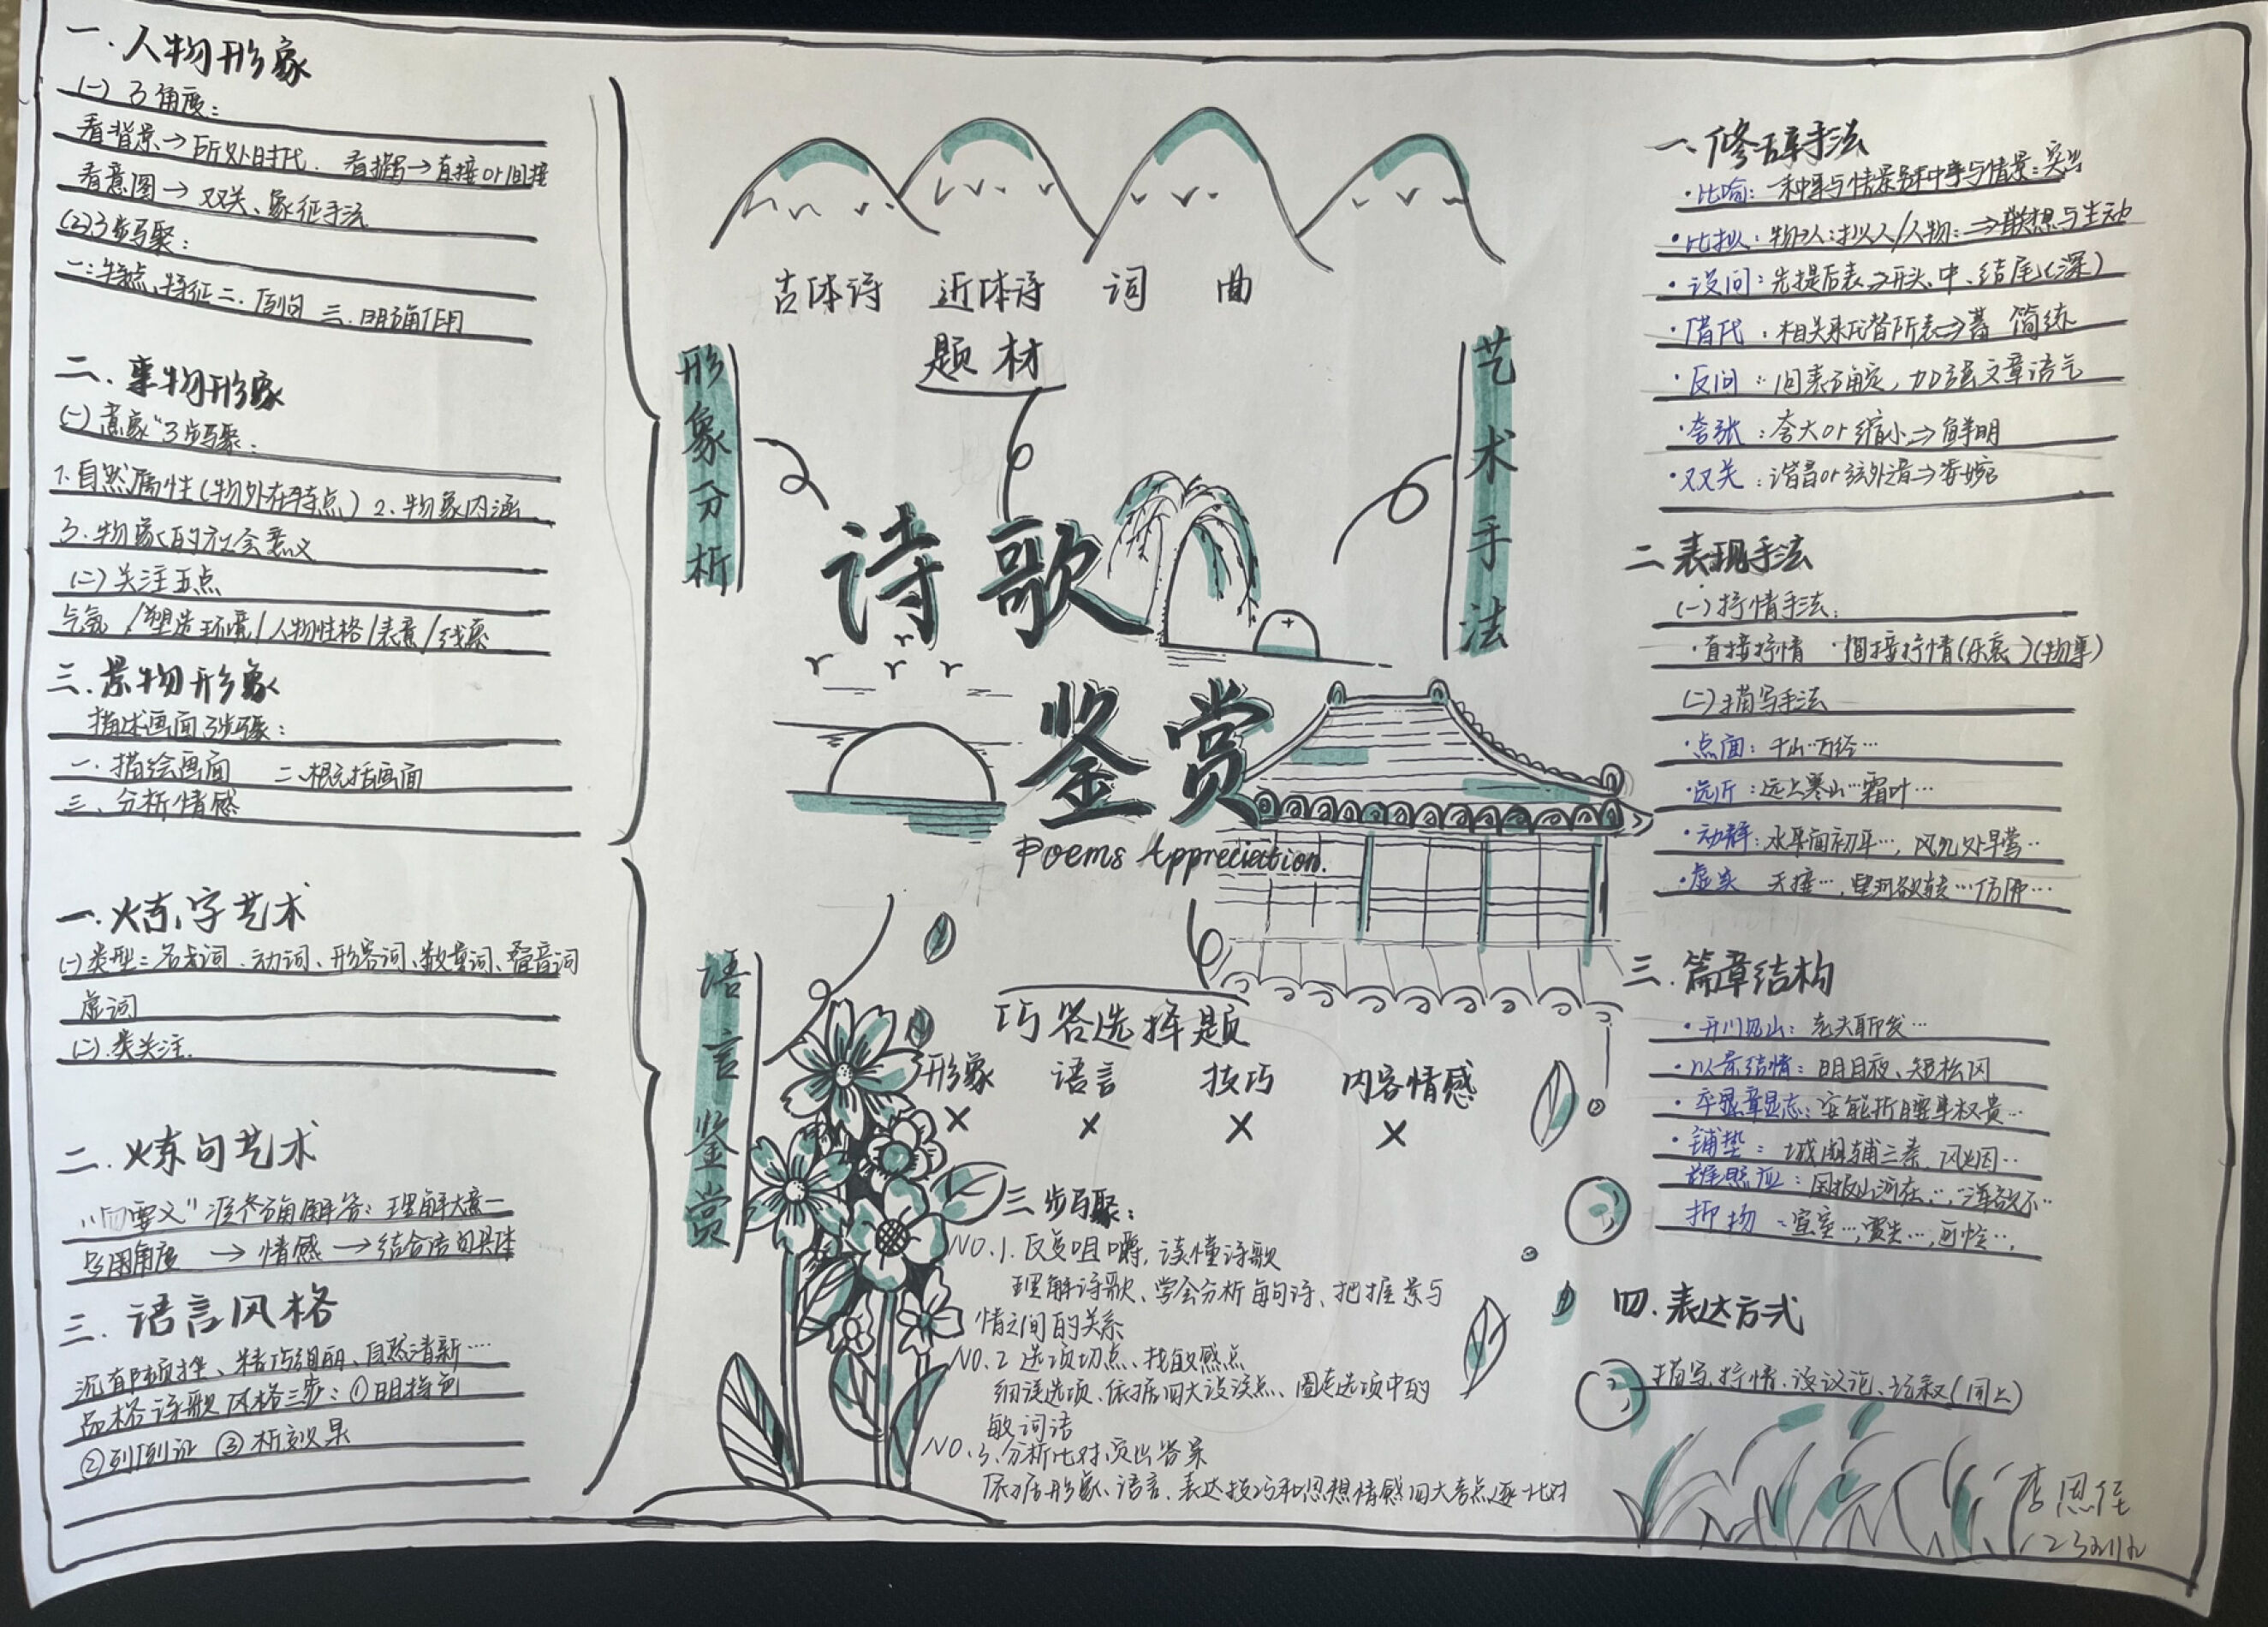 一.人物形象
(一) 3角度:
看背景→所处时代. 看描写→直接or间接
看意图→双关、象征手法
(2)3步骤:
一:特点、特征 二.例句 三.明确作用
二.事物形象
(一)意象"3步骤:
1.自然属性(物外在特点) 2.物象内涵
3.物象的社会意义
(二)关注五点
气氛/塑造环境/人物性格/表意/线索
三.景物形象
描述画面3步骤:
一.描绘画面 二.概括画面
三、分析情感
一.炼字艺术
(一)类型:名词、动词、形容词、数量词、叠音词
虚词
(二).类关注.
二.炼句艺术
"四要义"准备确解答:理解大意—
多用角度→情感→结合语句具体
三.语言风格
沉郁顿挫、精巧绚丽、自然清新……
品格诗歌风格三步:①明特色
②列例证 ③析效果
古体诗 近体诗 词 曲
题材
形象分析
艺术手法
诗歌
鉴赏
Poems Appreciation.
语言鉴赏
巧答选择题
形象 语言 技巧 内容情感
× × × ×
三步骤:
NO.1.反复咀嚼,读懂诗歌
理解诗歌、学会分析每句诗、把握景与
情之间的关系
NO.2 选项切点、找敏感点
细读选项、依据四大设误点、圈走选项中的
敏词语
NO.3.分析比对,选出答案
依据形象、语言、表达技巧和思想情感四大考点逐一比对
一、修辞手法
·比喻:一种事与情景另种事与情景:突出
·比拟:物→人:拟人/人物:→联想与生动
·设问:先提后表→开头、中、结尾(深)
·借代:相关来代替所表→蓄 简练
·反问:问表确定,加强文章语气
·夸张:夸大or缩小→鲜明
·双关:谐音or弦外音→委婉
二表现手法
(一)抒情手法:
·直接抒情 ·间接抒情(乐哀)(物事)
(二)描写手法
·点面:千山…万径…
·远近:远上寒山…霜叶…
·动静:水面初平…,几处早莺…
·虚实 天接…,星河欲转…仿佛…
三.篇章结构
·开门见山:老夫聊发…
·以景结情:明月夜、短松冈
·卒章显志:安能折腰事权贵…
·铺垫:城阙辅三秦,风烟…
照应:国破山河在…,浑欲不…
抑扬:宣室…,贾生…,可怜…,
四.表达方式
描写、抒情、议论、记叙(同上)